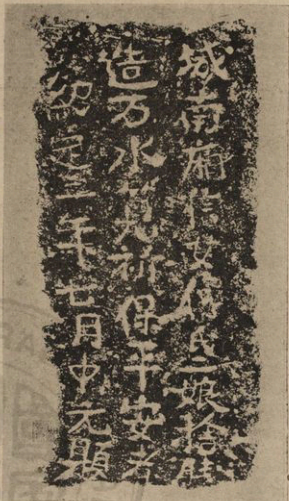 城南廂信女傅氏二娘捨財
造万水筧祈保平安者
紹定三年七月中元題